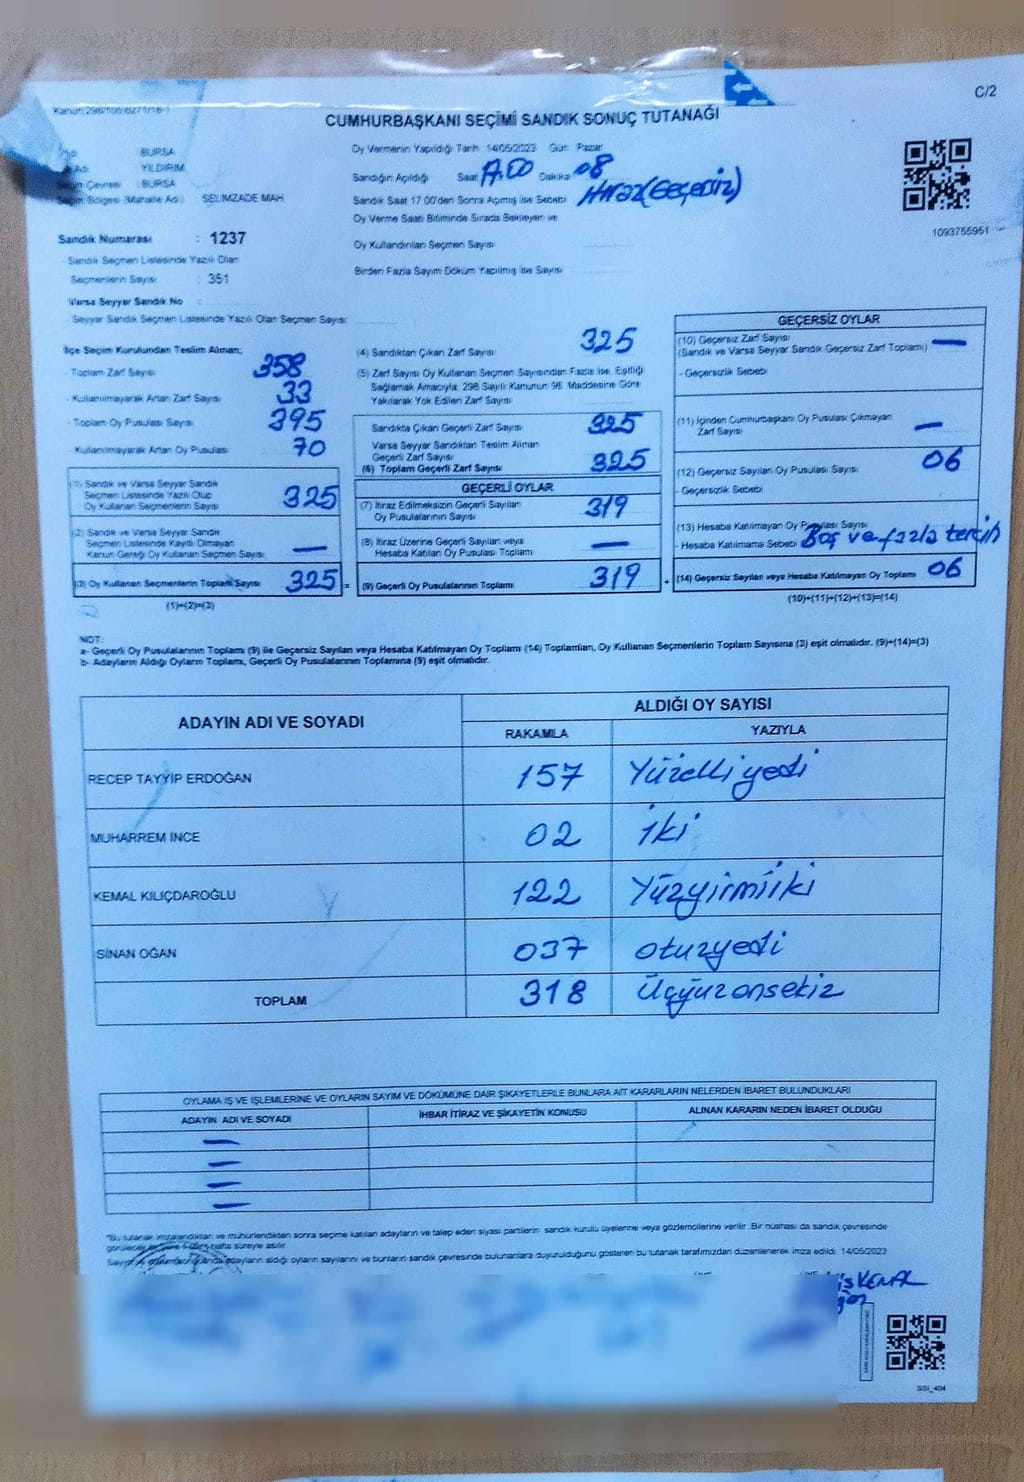 C/2
CUMHURBAŞKANI SEÇİMİ SANDIK SONUÇ TUTANAĞI
BURSA
YILDIRIM
Seçim Çevresi : BURSA
Seçim Bölgesi (Mahalle Adı) SELİMZADE MAH
Sandık Numarası : 1237
Sandık Seçmen Listesinde Yazılı Olan
Seçmenlerin Sayısı : 351
Varsa Seyyar Sandık No
- Seyyar Sandık Seçmen Listesinde Yazılı Olan Seçmen Sayısı:
Oy Vermenin Yapıldığı Tarih 14/05/2023 Gün Pazar
Sandığın Açıldığı Saat Dakika 08
Sandık Saat 17.00'den Sonra Açılmış İse Sebebi (Geçersiz)
Oy Verme Saati Bitiminde Sırada Bekleyen ve
Oy Kullandırılan Seçmen Sayısı
Birden Fazla Sayım Döküm Yapılmış İse Sayısı
1093755951
İlçe Seçim Kurulundan Teslim Alınan;
- Toplam Zarf Sayısı 358
- Kullanılmayarak Artan Zarf Sayısı 33
- Toplam Oy Pusulası Sayısı 395
- Kullanılmayarak Artan Oy Pusulası 70
(1) Sandık ve Varsa Seyyar Sandık
Seçmen Listesinde Yazılı Olup
Oy Kullanan Seçmenlerin Sayısı 325
(2) Sandık ve Varsa Seyyar Sandık
Seçmen Listesinde Kayıtlı Olmayan
Kanun Gereği Oy Kullanan Seçmen Sayısı —
(3) Oy Kullanan Seçmenlerin Toplam Sayısı 325 =
(1)+(2)=(3)
(4) Sandıktan Çıkan Zarf Sayısı 325
(5) Zarf Sayısı Oy Kullanan Seçmen Sayısından Fazla İse, Eşitliği
Sağlamak Amacıyla; 298 Sayılı Kanunun 98. Maddesine Göre
Yakılarak Yok Edilen Zarf Sayısı
Sandıkta Çıkan Geçerli Zarf Sayısı 325
Varsa Seyyar Sandıktan Teslim Alınan
Geçerli Zarf Sayısı
(6) Toplam Geçerli Zarf Sayısı 325
GEÇERLİ OYLAR
(7) İtiraz Edilmeksizin Geçerli Sayılan
Oy Pusulalarının Sayısı 319
(8) İtiraz Üzerine Geçerli Sayılan veya
Hesaba Katılan Oy Pusulası Toplamı —
(9) Geçerli Oy Pusulalarının Toplamı 319 +
GEÇERSİZ OYLAR
(10) Geçersiz Zarf Sayısı —
(Sandık ve Varsa Seyyar Sandık Geçersiz Zarf Toplamı)
- Geçersizlik Sebebi
(11) İçinden Cumhurbaşkanı Oy Pusulası Çıkmayan
Zarf Sayısı —
(12) Geçersiz Sayılan Oy Pusulası Sayısı 06
- Geçersizlik Sebebi
(13) Hesaba Katılmayan Oy Pusulası Sayısı
- Hesaba Katılmama Sebebi Boş ve fazla tercih
(14) Geçersiz Sayılan veya Hesaba Katılmayan Oy Toplamı 06
(10)+(11)+(12)+(13)=(14)
NOT:
a- Geçerli Oy Pusulalarının Toplamı (9) ile Geçersiz Sayılan veya Hesaba Katılmayan Oy Toplamı (14) Toplamları, Oy Kullanan Seçmenlerin Toplam Sayısına (3) eşit olmalıdır. (9)+(14)=(3)
b- Adayların Aldığı Oyların Toplamı, Geçerli Oy Pusulalarının Toplamına (9) eşit olmalıdır.
ADAYIN ADI VE SOYADI ALDIĞI OY SAYISI
RAKAMLA YAZIYLA
RECEP TAYYİP ERDOĞAN 157 Yüzelliyedi
MUHARREM İNCE 02 İki
KEMAL KILIÇDAROĞLU 122 Yüzyirmiiki
SİNAN OĞAN 037 otuzyedi
TOPLAM 318 Üçyüzonsekiz
OYLAMA İŞ VE İŞLEMLERİNE VE OYLARIN SAYIM VE DÖKÜMÜNE DAİR ŞİKAYETLERLE BUNLARA AİT KARARLARIN NELERDEN İBARET BULUNDUKLARI
ADAYIN ADI VE SOYADI İHBAR İTİRAZ VE ŞİKAYETİN KONUSU ALINAN KARARIN NEDEN İBARET OLDUĞU
—
—
—
—
"Bu tutanak imzalandıktan ve mühürlendikten sonra seçime katılan adayların ve talep eden siyasi partilerin sandık kurulu üyelerine veya gözlemcilerine verilir. Bir nüshası da sandık çevresinde
adayların aldığı oyların sayılarını ve bunların sandık çevresinde bulunanlara duyurulduğunu gösteren bu tutanak tarafımızdan düzenlenerek imza edildi. 14/05/2023
KEMAL